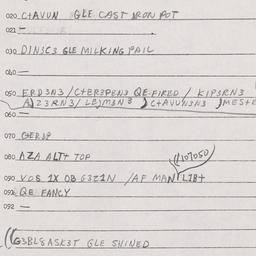 020 C+AVUN GLE CAST IRON POT
021 —
030 DIN3C3 GLE MILKING PAIL
040 —
050 ERD3N3/C+ER3PRN3 QE-FIRED / KIP3RN3
060 —
070 C+ER3P
080 AZA ALT+ TOP
090 VOS 1X OB G3Z1N /AF MAN L1B+
//107050
092 QE FANCY
092 —
((G3BL8ASK3T GLE SHINED